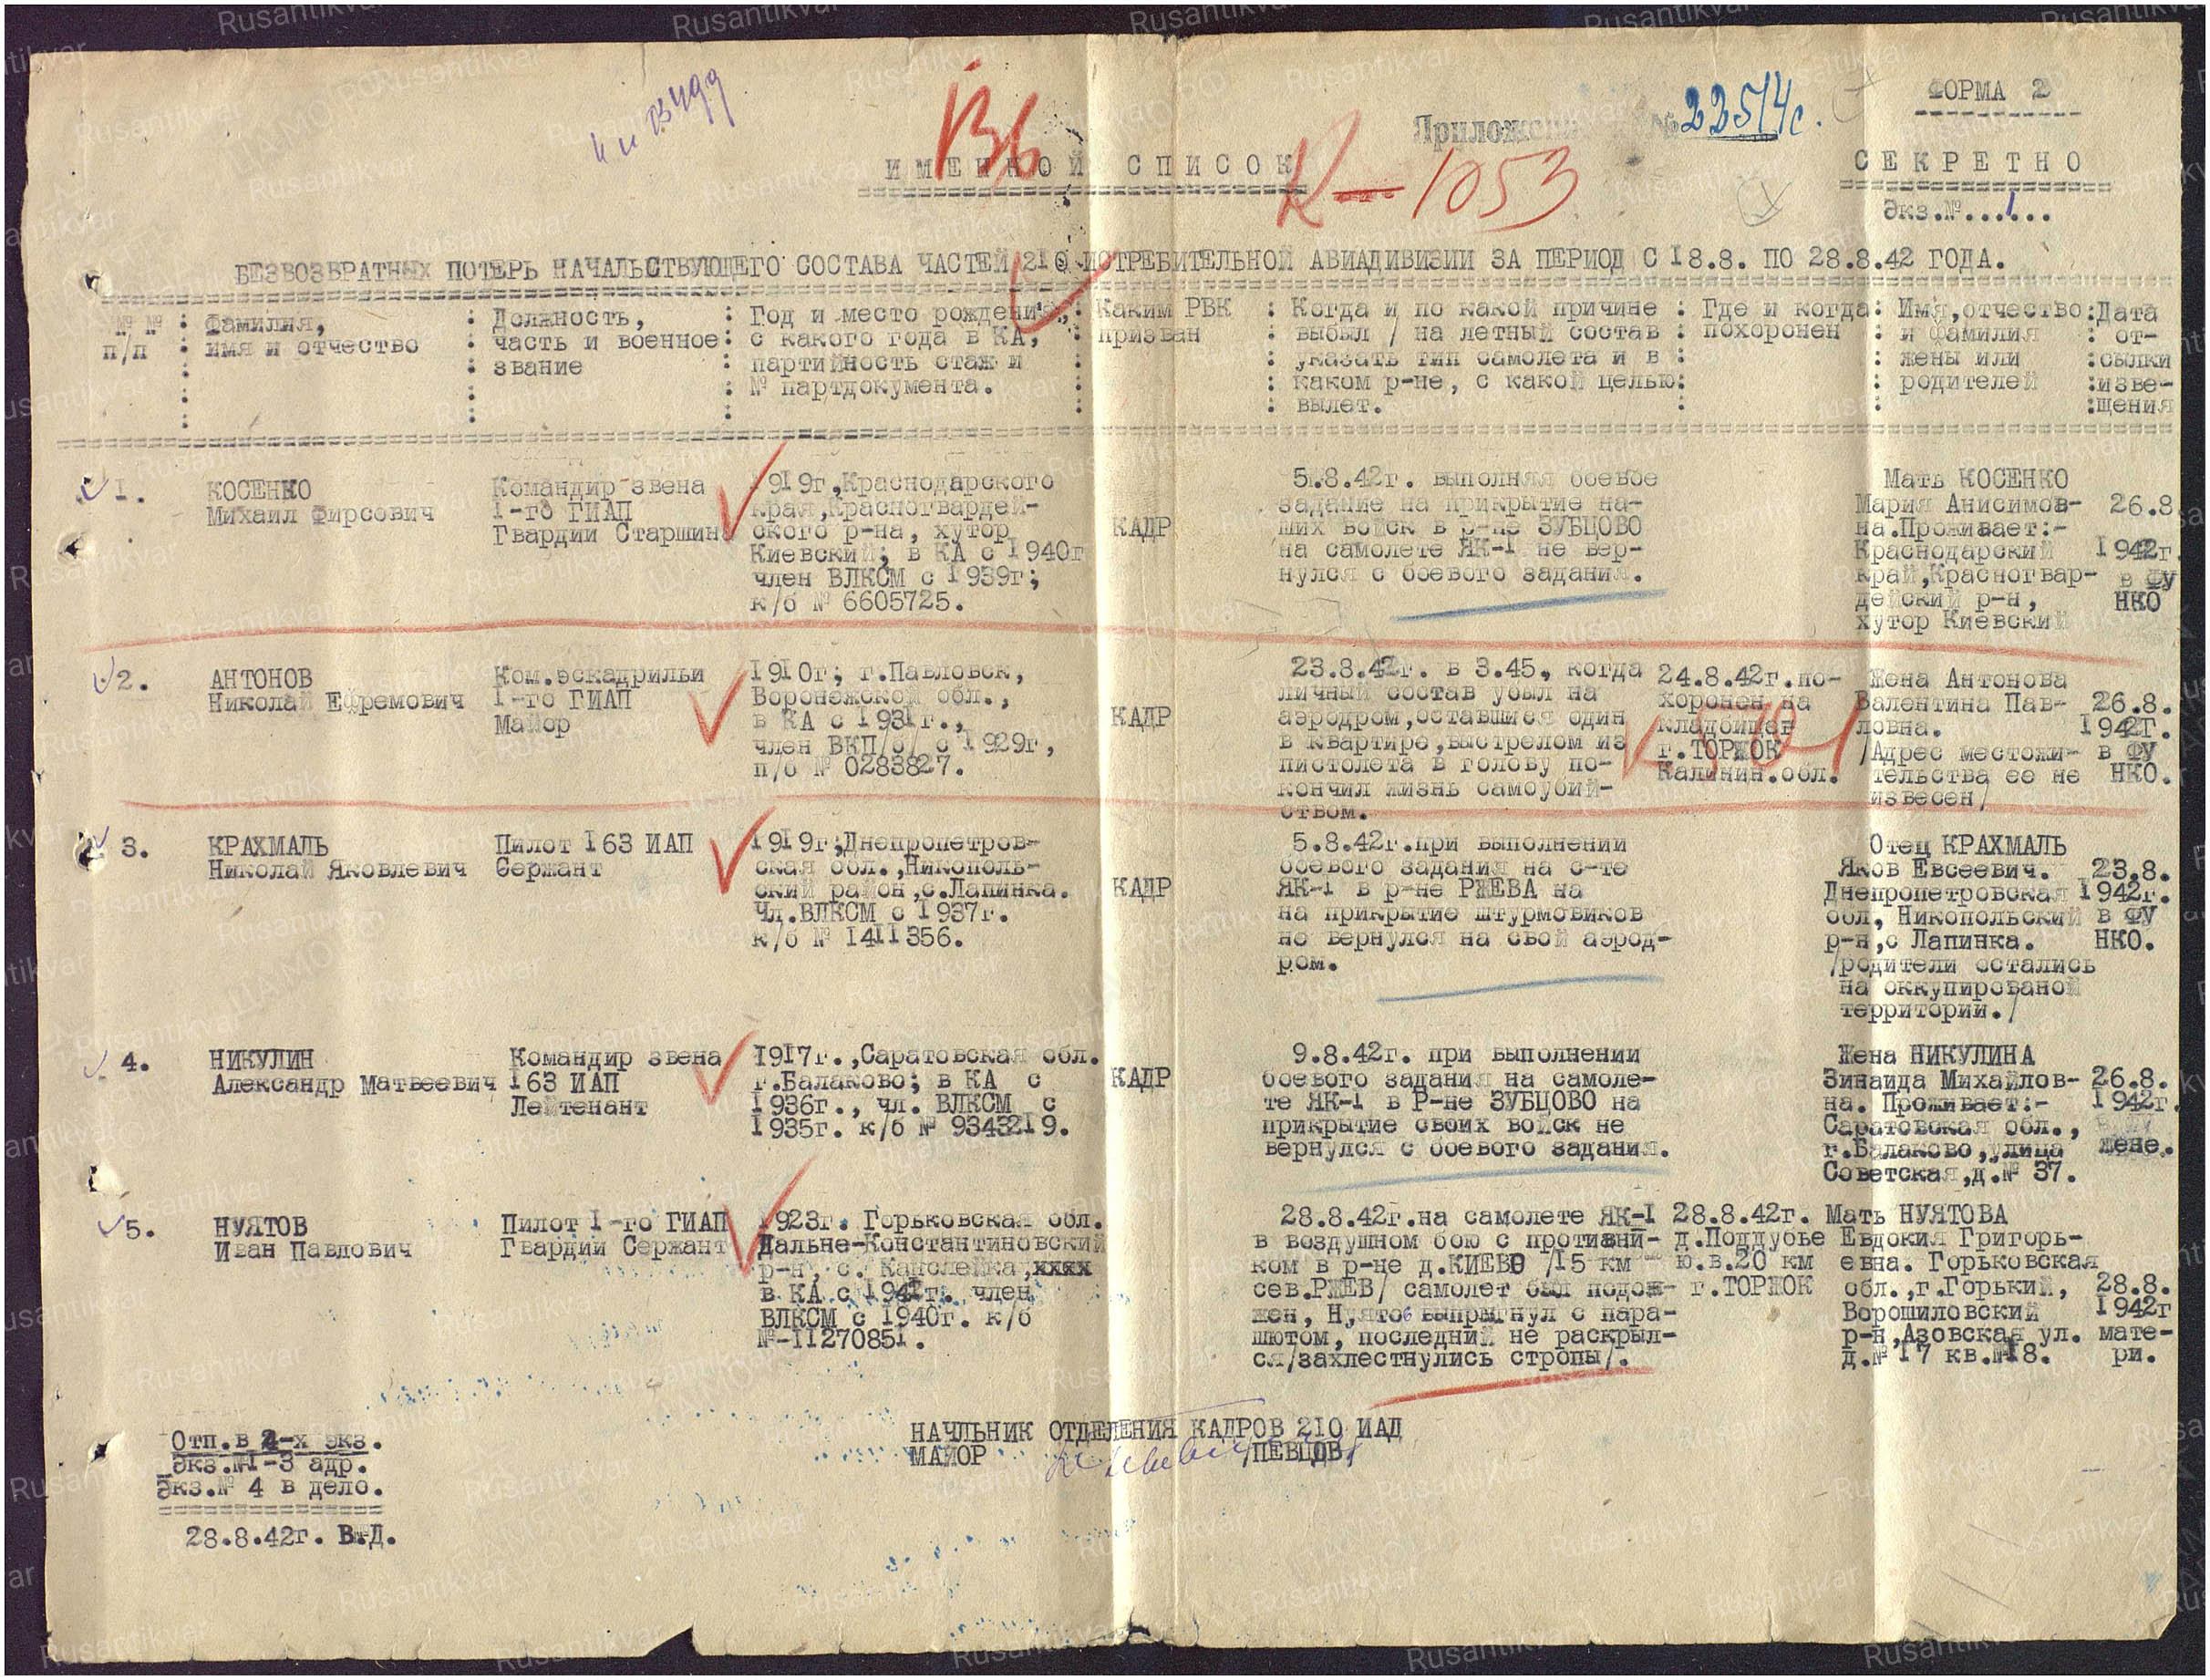 ФОРМА 2
Приложение № 22514с.
В6
ИМЕННОЙ СПИСОК
К-1053
СЕКРЕТНО
Экз.№...1...
БЕЗВОЗВРАТНЫХ ПОТЕРЬ НАЧАЛЬСТВУЮЩЕГО СОСТАВА ЧАСТЕЙ 210 ИСТРЕБИТЕЛЬНОЙ АВИАДИВИЗИИ ЗА ПЕРИОД С 18.8. ПО 28.8.42 ГОДА.
№ №
п/п
Фамилия,
имя и отчество
Должность,
часть и военное
звание
Год и место рождения,
с какого года в КА,
партийность стаж и
№ партдокумента.
Каким РВК
призван
Когда и по какой причине
выбыл / на летный состав
указать тип самолета и в
каком р-не, с какой целью
вылет.
Где и когда
похоронен
Имя,отчество
и фамилия
жены или
родителей
Дата
от-
сылки
изве-
щения
1.
КОСЕНКО
Михаил Фирсович
Командир звена
1-го ГИАП
Гвардии Старшина
1919г,Краснодарского
края,Красногвардей-
ского р-на, хутор
Киевский; в КА с 1940г
член ВЛКСМ с 1939г;
к/б № 6605725.
КАДР
5.8.42г. выполняя боевое
задание на прикрытие на-
ших войск в р-не ЗУБЦОВО
на самолете ЯК-1 не вер-
нулся с боевого задания.
Мать КОСЕНКО
Мария Анисимов-
на.Проживает:-
Краснодарский
край,Красногвар-
дейский р-н,
хутор Киевский
26.8
1942г.
в ФУ
НКО
2.
АНТОНОВ
Николай Ефремович
Ком.эскадрильи
1-го ГИАП
Майор
1910г; г.Павловск,
Воронежской обл.,
в КА с 1931г.,
член ВКП/б/ с 1929г,
п/б № 0283827.
КАДР
23.8.42г. в 3.45, когда
личный состав убыл на
аэродром,оставшися один
в квартире,выстрелом из
пистолета в голову по-
кончил жизнь самоубий-
ством.
24.8.42г.по-
хоронен на
кладбище
г.ТОРЖОК
Калинин.обл.
Жена Антонова
Валентина Пав-
ловна.
/Адрес местожи-
тельства ее не
извесен/
26.8.
1942г.
в ФУ
НКО.
3.
КРАХМАЛЬ
Николай Яковлевич
Пилот 163 ИАП
Сержант
1919г;Днепропетров-
ская обл.,Никополь-
ский район,с.Лапинка.
Чл.ВЛКСМ с 1937г.
к/б № 1411356.
КАДР
5.8.42г.при выполнении
боевого задания на с-те
ЯК-1 в р-не РЖЕВА на
на прикрытие штурмовиков
не вернулся на свой аэрод-
ром.
Отец КРАХМАЛЬ
Яков Евсеевич.
Днепропетровская
обл, Никопольский
р-н,с Лапинка.
/родители остались
на оккупированой
территории./
23.8.
1942г.
в ФУ
НКО.
4.
НИКУЛИН
Александр Матвеевич
Командир звена
163 ИАП
Лейтенант
1917г.,Саратовская обл.
г.Балаково; в КА с
1936г., чл. ВЛКСМ с
1935г. к/б № 9343219.
КАДР
9.8.42г. при выполнении
боевого задания на самоле-
те ЯК-1 в Р-не ЗУБЦОВО на
прикрытие своих войск не
вернулся с боевого задания.
Жена НИКУЛИНА
Зинаида Михайлов-
на. Проживает:-
Саратовская обл.,
г.Балаково,улица
Советская,д.№ 37.
26.8.
1942г.
жене.
5.
НУЯТОВ
Иван Павлович
Пилот 1-го ГИАП
Гвардии Сержант
1923г. Горьковская обл.
Дальне-Константиновский
р-н, с. Капслейка,хххх
в КА с 1941г. член
ВЛКСМ с 1940г. к/б
№-11270851.
28.8.42г.на самолете ЯК-1
в воздушном бою с противни-
ком в р-не д.КИЕВО /15 км
сев.РЖЕВ/ самолет был подож-
жен, Нуятов выпрыгнул с пара-
шютом, последний не раскрыл-
ся/захлестнулись стропы/.
28.8.42г.
д.Поддубье
ю.в.20 км
г.ТОРЖОК
Мать НУЯТОВА
Евдокия Григорь-
евна. Горьковская
обл.,г.Горький,
Ворошиловский
р-н,Азовская ул.
д.№ 17 кв.№18.
28.8.
1942г
мате-
ри.
НАЧЛЬНИК ОТДЕЛЕНИЯ КАДРОВ 210 ИАД
МАЙОР /ПЕВЦОВ/
Отп.в 4-х экз.
Экз.№1-3 адр.
Экз.№ 4 в дело.
28.8.42г. В.Д.